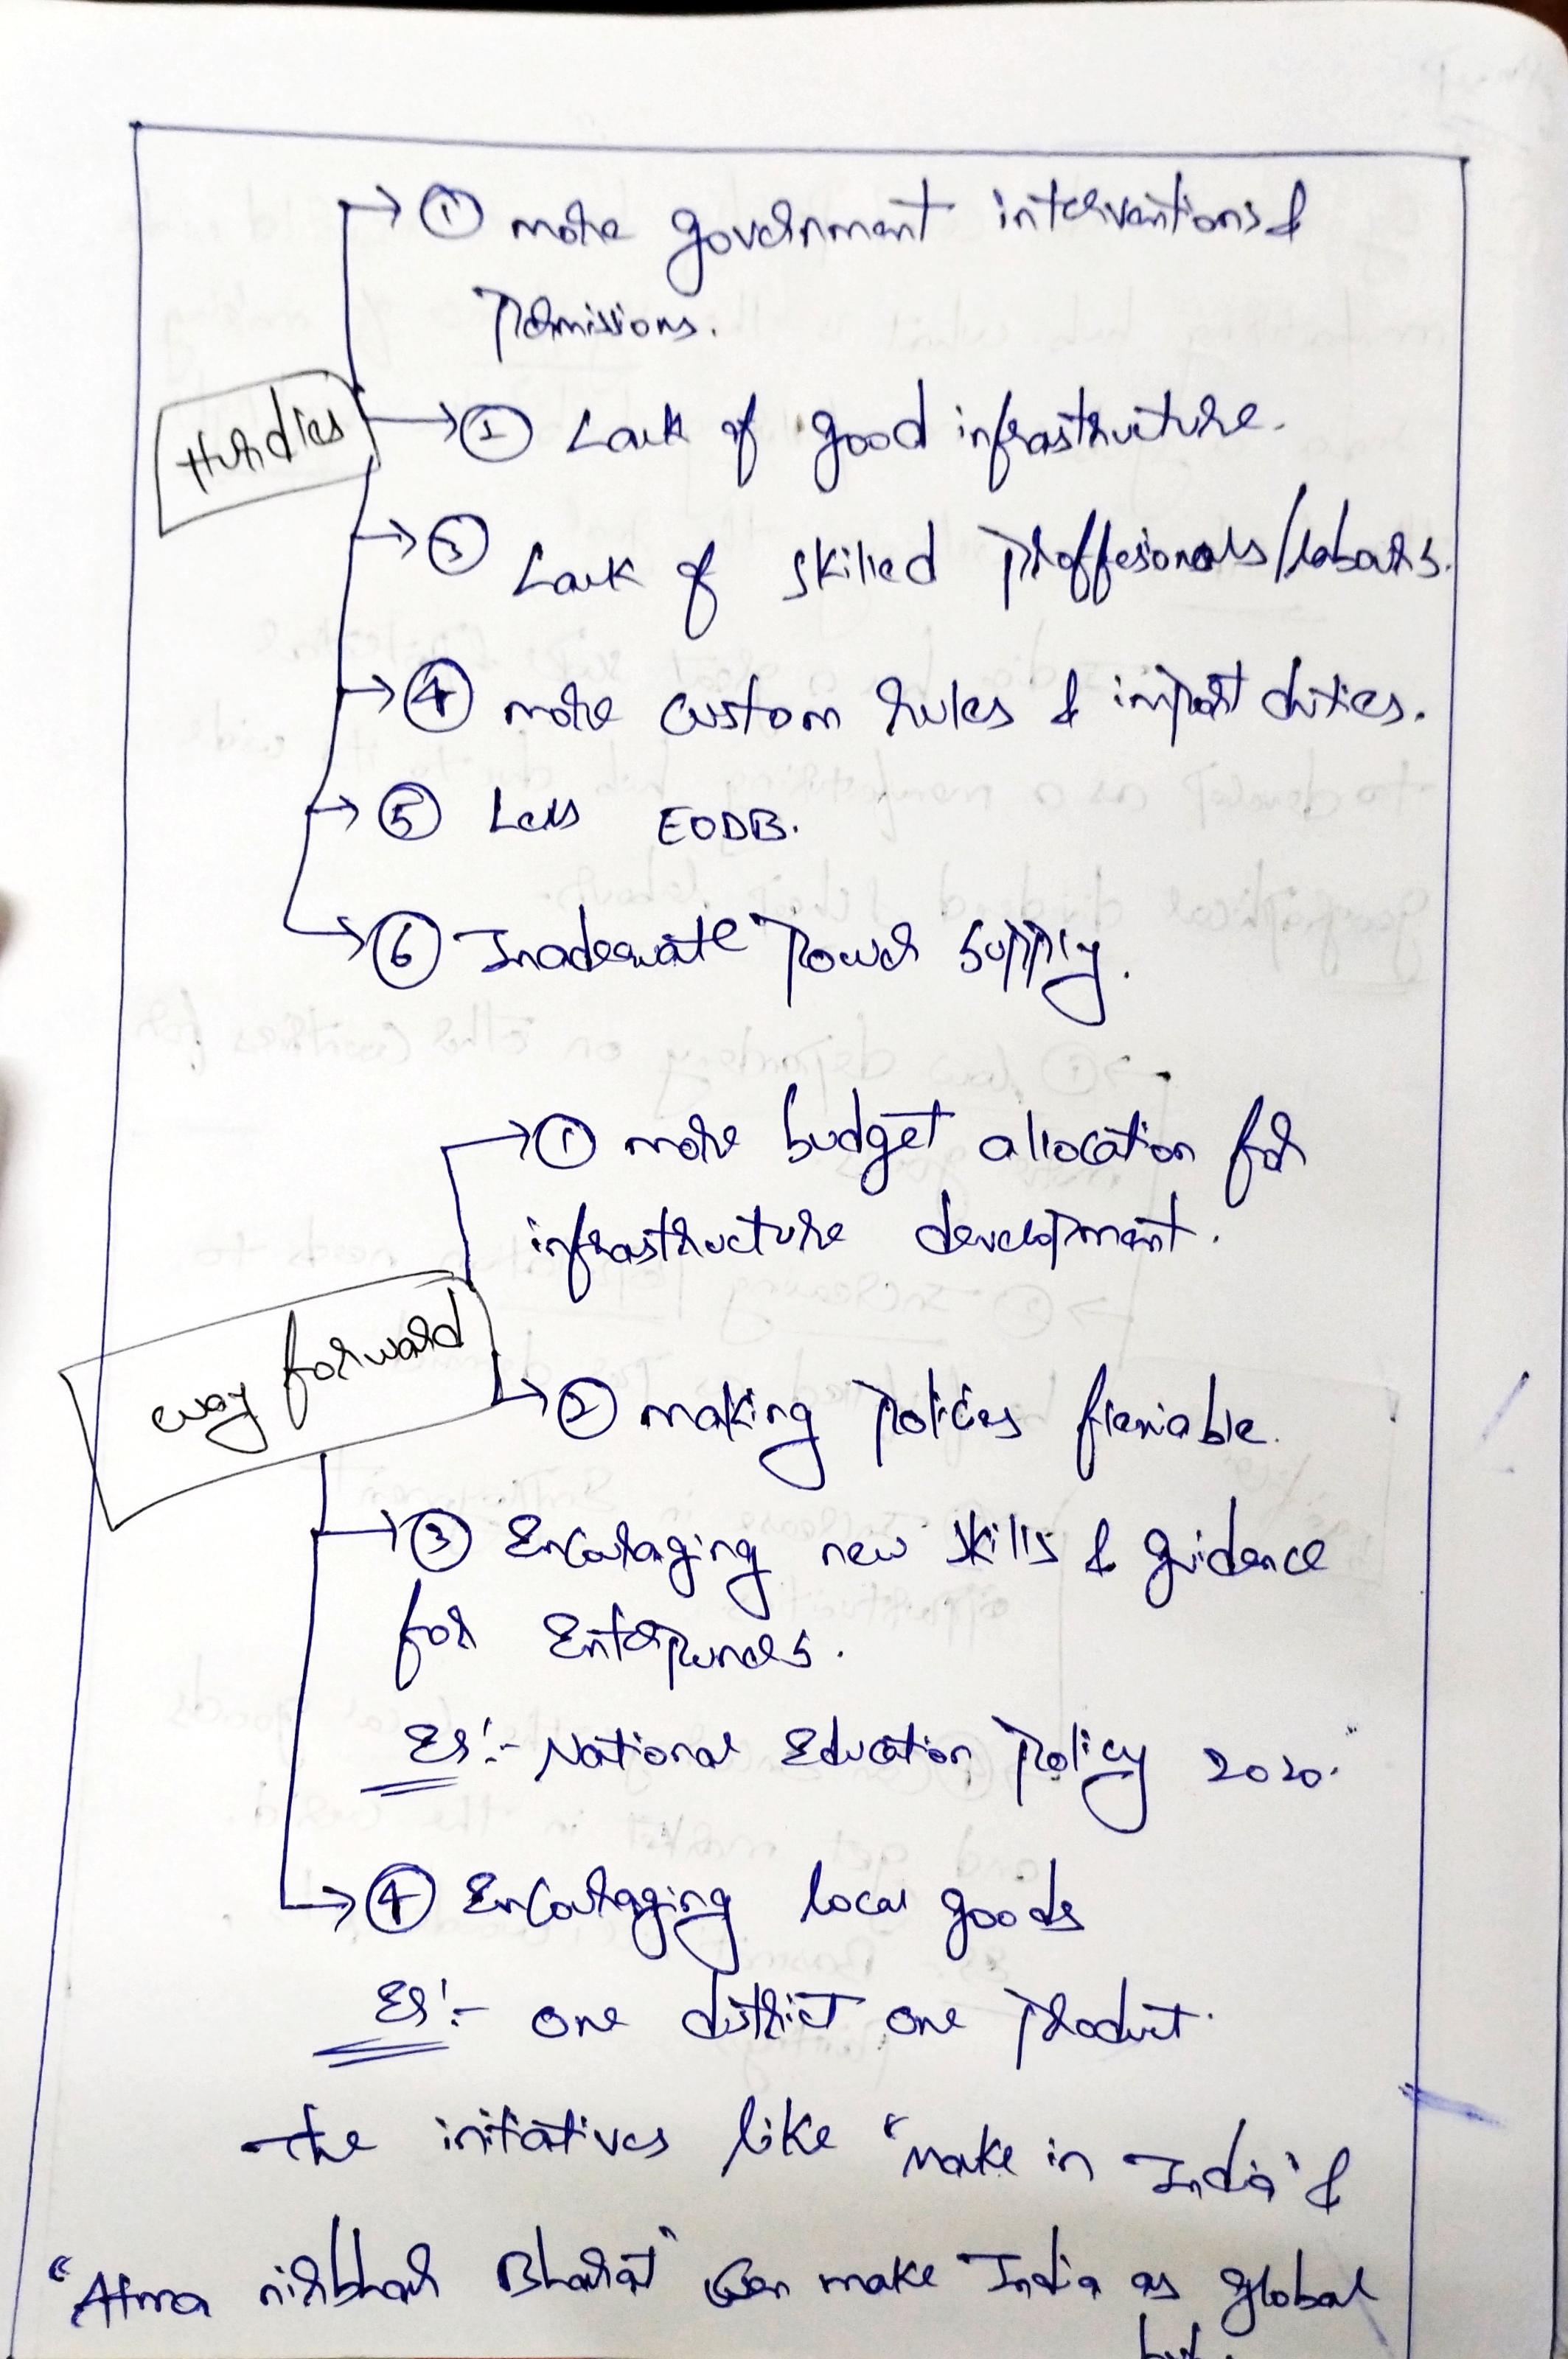 ① more government interventions &
Permissions.
Hurdles
② Lack of good infrastructure.
③ Lack of skilled Proffesionals/labours.
④ more custom rules & import duties.
⑤ Less EODB.
⑥ Inadequate Power Supply.
① more budget allocation for
infrastructure development.
way forward
② making Policies flexiable.
③ Encouraging new skills & guidence
for
Ex:- National Education Policy 2020.
④ Encouraging local goods
Ex:- one district one Product.
The initiatives like "Make in India" &
"Atma nirbhar Bharat" can make India as global
hub.